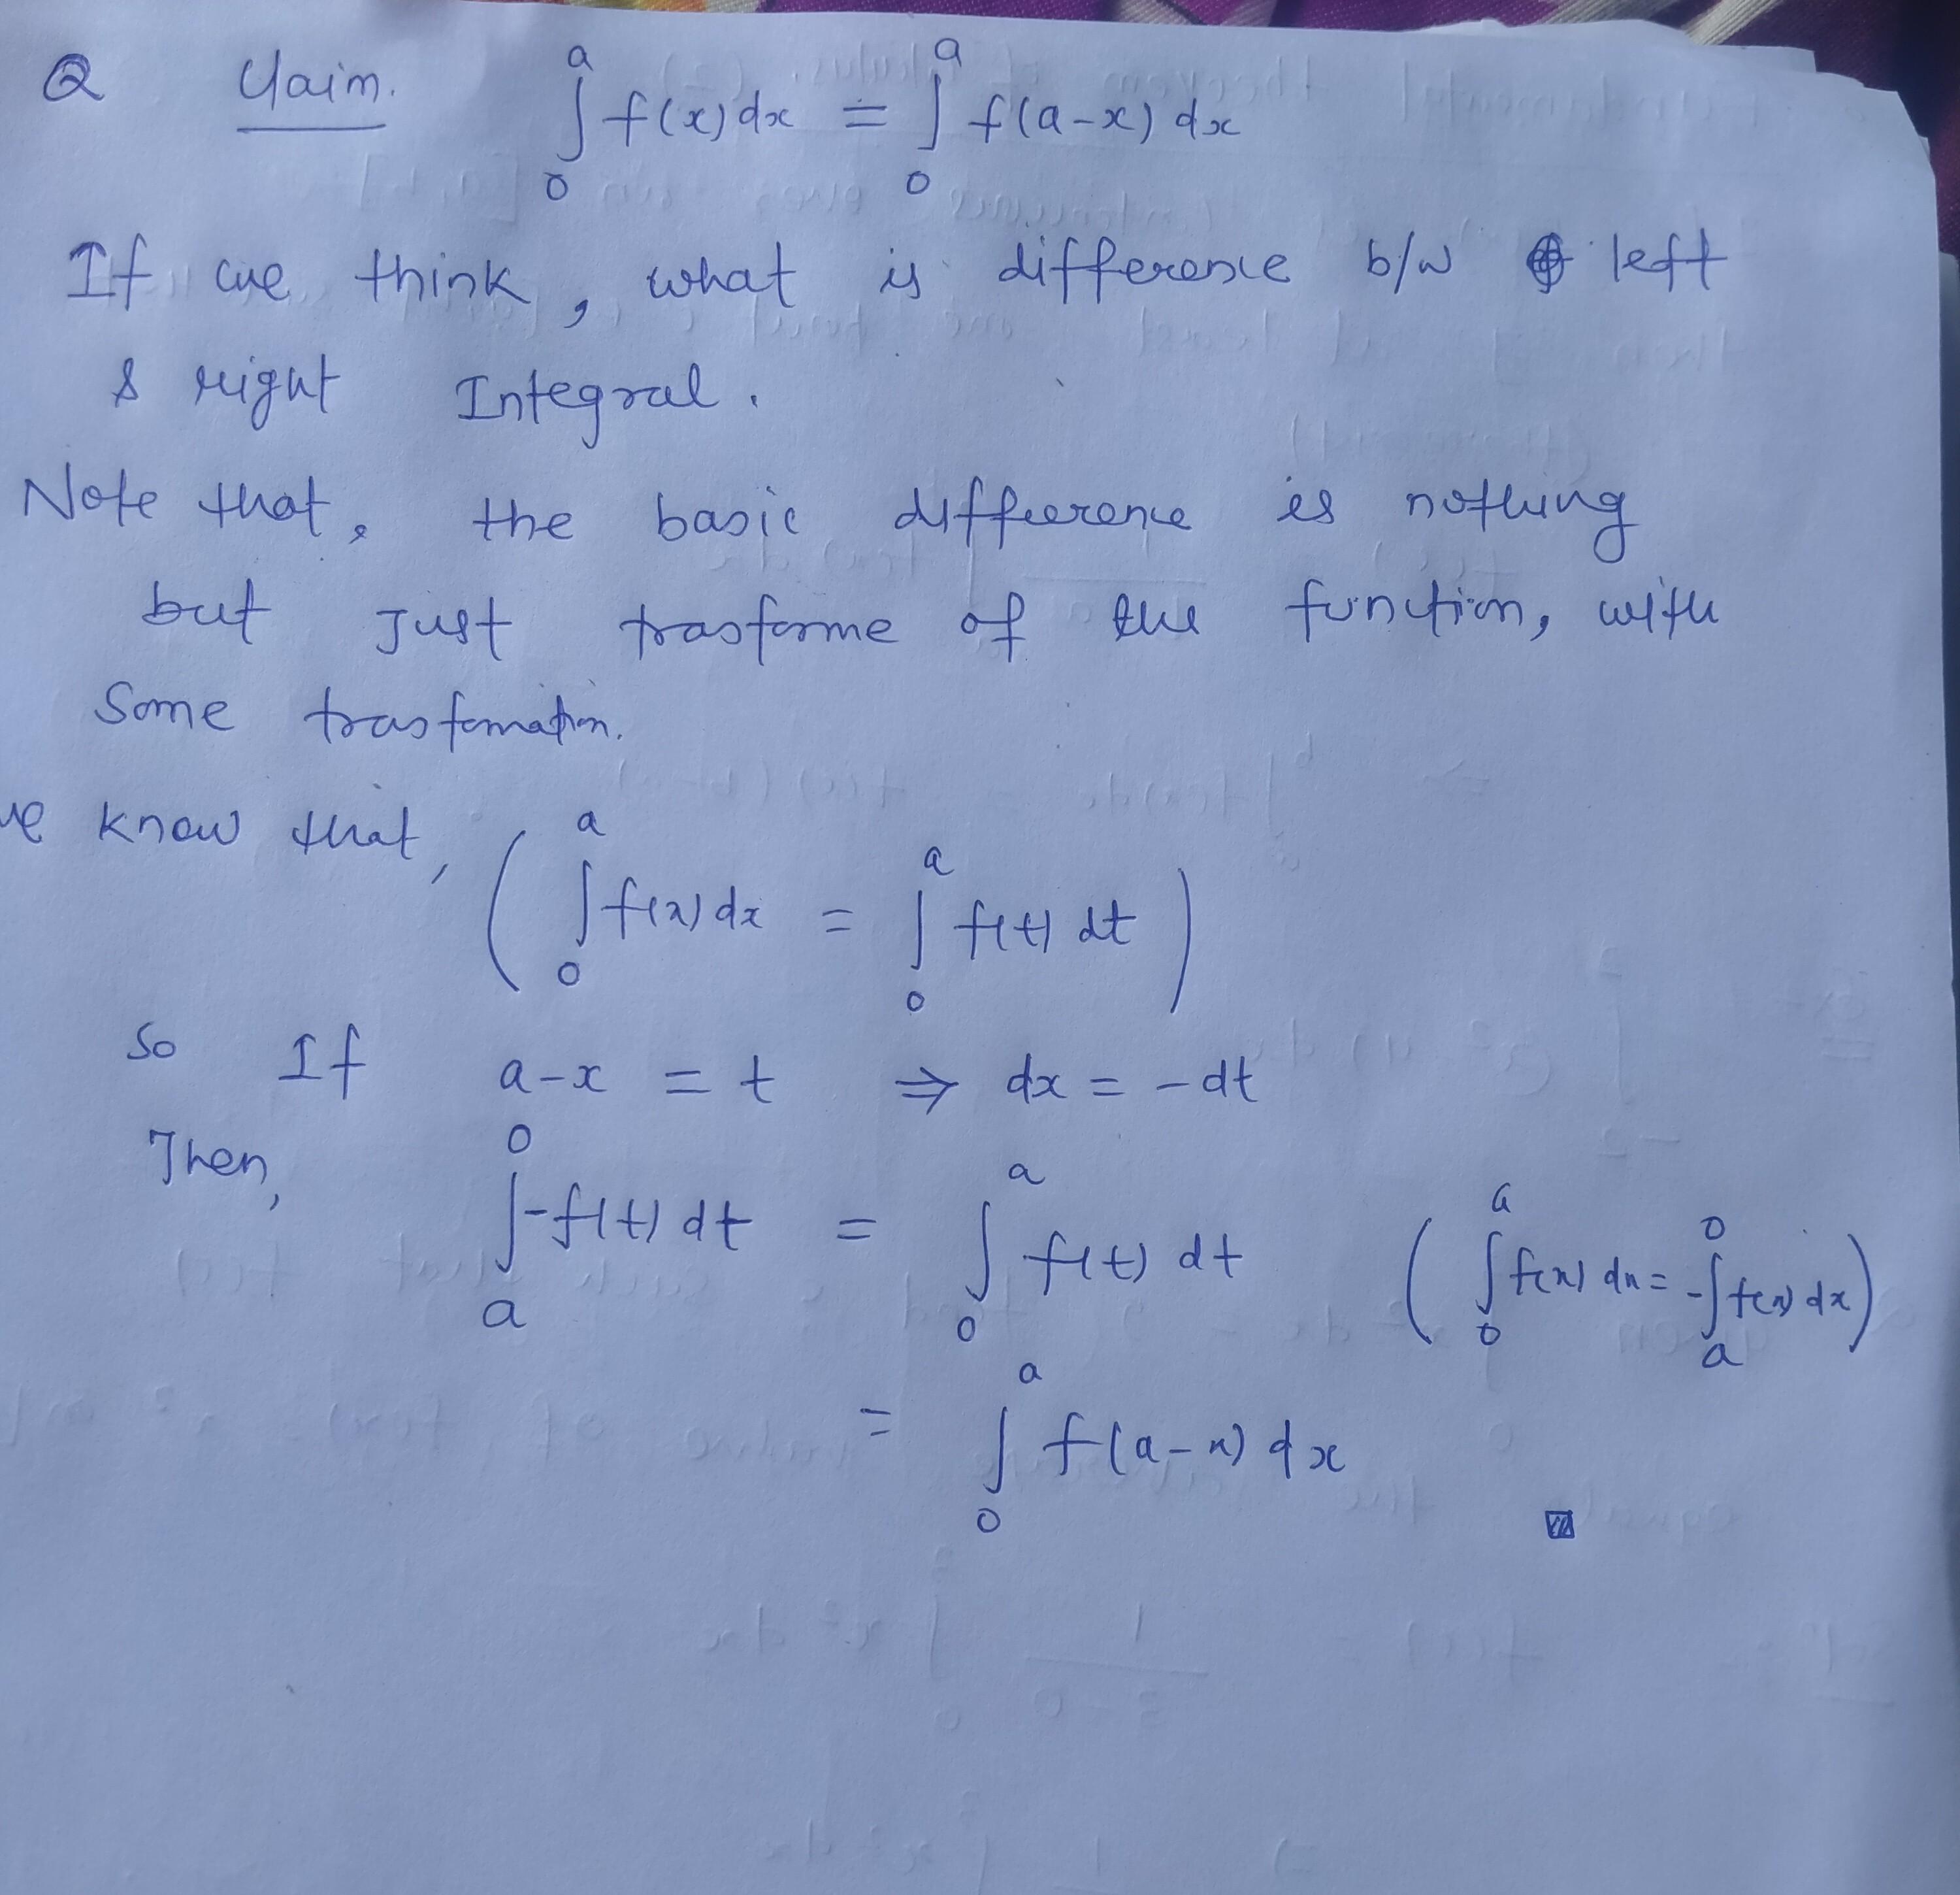 Q Claim. ∫₀ᵃ f(x) dx = ∫₀ᵃ f(a-x) dx
If we think, what is difference b/w left
& right Integral.
Note that, the basic difference is nothing
but just trasforme of the function, with
Some trasformation.
we know that, ( ∫₀ᵃ f(x) dx = ∫₀ᵃ f(t) dt )
So If a-x = t ⇒ dx = -dt
Then, ∫ₐ⁰ -f(t) dt = ∫₀ᵃ f(t) dt ( ∫₀ᵃ f(x) dx = -∫ₐ⁰ f(x) dx )
= ∫₀ᵃ f(a-x) dx